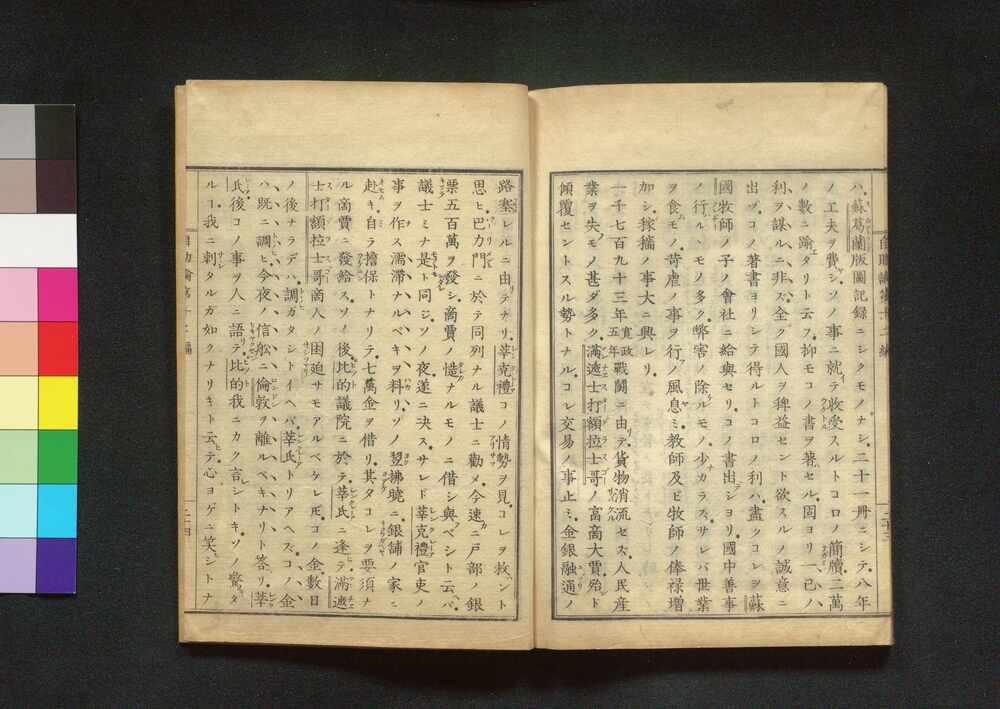 ハ蘇葛蘭版圖記録ニシクモノナシ二十一冊ニシテ八年
ノ工夫ヲ費シソノ事ニ就テ收受スルトコロノ簡牘二萬
ノ數ニ踰タリト云フ抑モコノ書ヲ著セル固ヨリ一己ノ
利ヲ謀ルニ非ズ全ク國人ヲ裨益セント欲スルノ誠意ニ
出ヅコノ著書ヨリシテ得ルトコロノ利ハ盡クコレヲ蘇
國牧師ノ子ノ會社ニ給與セリコノ書出シヨリ國中善事
ノ行ルヽモノ多ク弊害ノ除ルモノ少カラズサレバ世業
ヲ食モノ苛虐ノ事ヲ行ノ風息ミ教師及ビ牧師ノ俸禄増
加シ稼穡ノ事大ニ興レリ
一千七百九十三年寛政五年戰鬪ニ由テ貨物消流セズ人民産
業ヲ失モノ甚ダ多ク滿遮士打額拉士哥ノ富商大賈殆ド
傾覆セントスル勢トナルコレ交易ノ事止ミ金銀融通ノ
路塞レルニ由テナリ莘克禮コノ情勢ヲ見コレヲ救ハント
思ヒ巴力門ニ於テ同列ナル議士ニ勸メ今速ニ戸部ノ銀
票五百萬ヲ發シ商賈ノ慥ナルモノニ借シ與ベシト云バ
議士ミナ是ト同ジソノ夜遂ニ決スサレド莘克禮官吏ノ
事ヲ作ス濡滯ナルベキヲ料リソノ翌拂曉ニ銀舗ノ家ニ
赴キ自ラ擔保トナリテ七萬金ヲ借リ其タコレヲ要須ナ
ル商賈ニ發給スソノ後比的議院ニ於テ莘氏ニ逢テ滿遮
士打額拉士哥商人ノ困迫サモアルベケレ𪜈コノ金數日
ノ後ナラデハ調ガタシトイヘバ莘氏トリアヘズコノ金
ハ既ニ調ヒ今夜ノ信舩ニ倫敦ヲ離ルベキナリト答リ莘
氏後コノ事ヲ人ニ語リ比的我ニカク言レシトキソノ驚タ
ルコ我ニ刺タルガ如クナリキト云テ心ヨゲニ笑シトナ